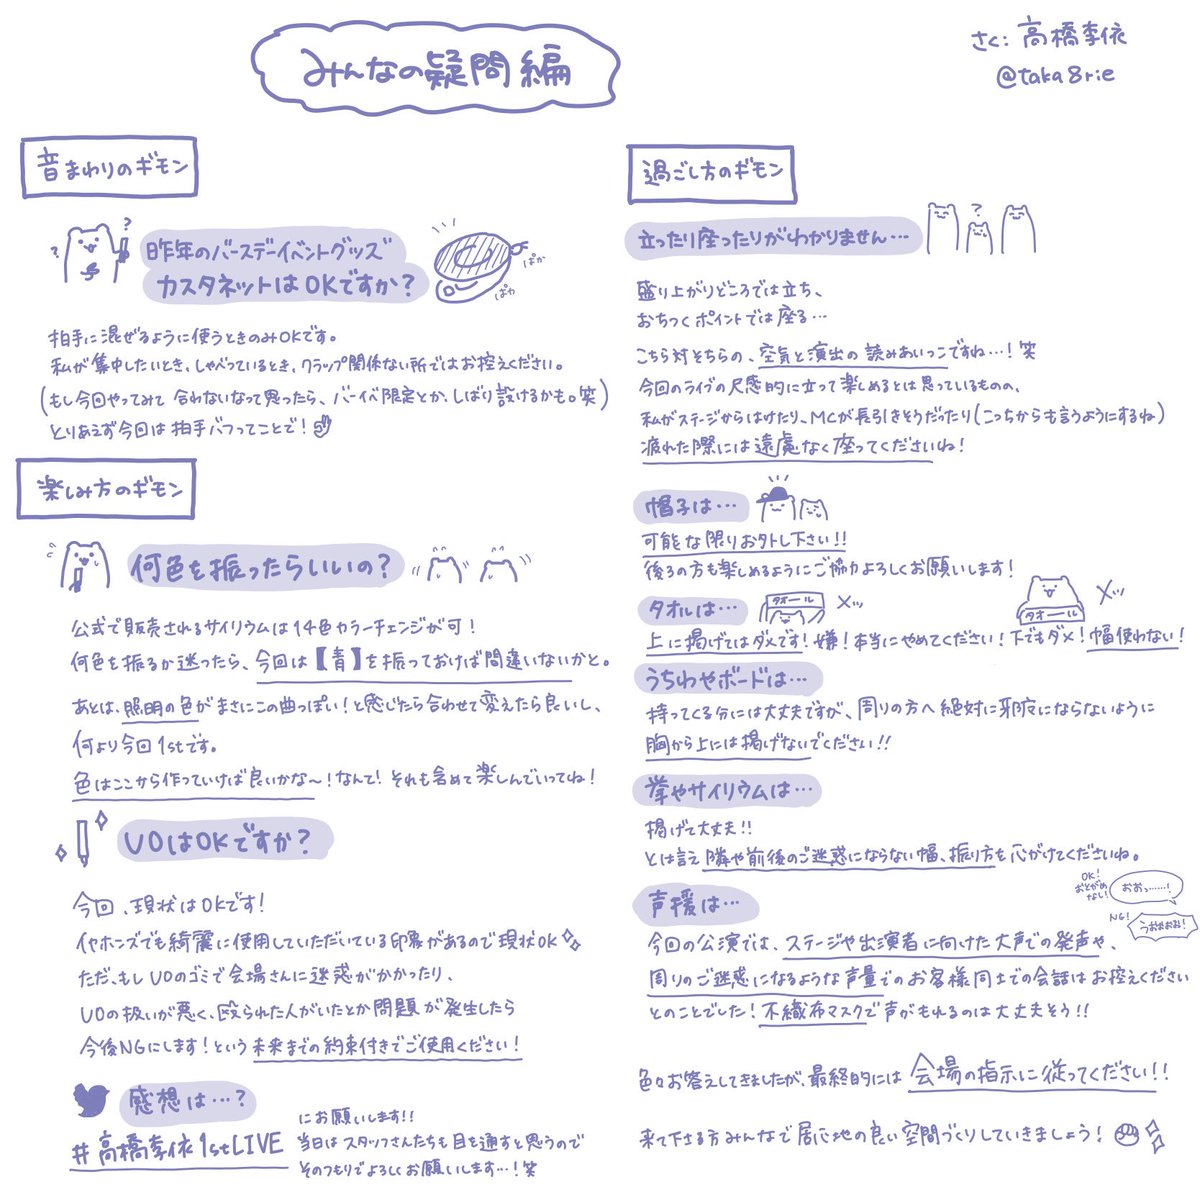 みんなの疑問編
さく:高橋李依
@taka8rie
音まわりのギモン
?
?
昨年のバースデーイベントグッズ
カスタネットはOKですか?
ぱか
ぱか
拍手に混ぜるように使うときのみOKです。
私が集中したいとき、しゃべっているとき、クラップ関係ない所ではお控えください。
(もし今回やってみて合わないなって思ったら、バーイベ限定とか、しばり設けるかも。笑)
とりあえず今回は拍手バフってことで!
楽しみ方のギモン
何色を振ったらいいの?
公式で販売されるサイリウムは14色カラーチェンジが可!
何色を振るか迷ったら、今回は【青】を振っておけば間違いないかと。
あとは、照明の色がまさにこの曲っぽい!と感じたら合わせて変えたら良いし、
何より今回1stです。
色はここから作っていけば良いかな〜!なんて!それも含めて楽しんでいってね!
UOはOKですか?
今回、現状はOKです!
イヤホンズでも綺麗に使用していただいている印象があるので現状OK
ただ、もしUOのゴミで会場さんに迷惑がかかったり、
UOの扱いが悪く、殴られた人がいたとか問題が発生したら
今後NGにします!という未来までの約束付きでご使用ください!
感想は…?
#高橋李依1stLIVE
にお願いします!!
当日はスタッフさんたちも目を通すと思うので
そのつもりでよろしくお願いします…!笑
過ごし方のギモン
立ったり座ったりがわかりません…
?
盛り上がりどころでは立ち、
おちつくポイントでは座る…
こちら対そちらの、空気と演出の読みあいっこですね…!笑
今回のライブの尺感的に立って楽しめるとは思っているものの、
私がステージからはけたり、MCが長引きそうだったり(こっちからも言うようにするね)
疲れた際には遠慮なく座ってくださいね!
帽子は…
可能な限りお外し下さい!!
後ろの方も楽しめるようにご協力よろしくお願いします!
タオルは…
タオール
メッ
タオール
メッ
上に掲げてはダメです!嫌!本当にやめてください!下でもダメ!幅使わない!
うちわやボードは…
持ってくる分には大丈夫ですが、周りの方へ絶対に邪魔にならないように
胸から上には掲げないでください!!
拳やサイリウムは…
掲げて大丈夫!!
とは言え隣や前後のご迷惑にならない幅、振り方を心がけてくださいね。
声援は…
OK!
おとがめなし!
おおっ……!
NG!
うおおおお!
今回の公演では、ステージや出演者に向けた大声での発声や、
周りのご迷惑になるような声量でのお客様同士での会話はお控えください
とのことでした!不織布マスクで声がもれるのは大丈夫そう!!
色々お答えしてきましたが、最終的には会場の指示に従ってください!!
来て下さる方みんなで居心地の良い空間づくりしていきましょう!